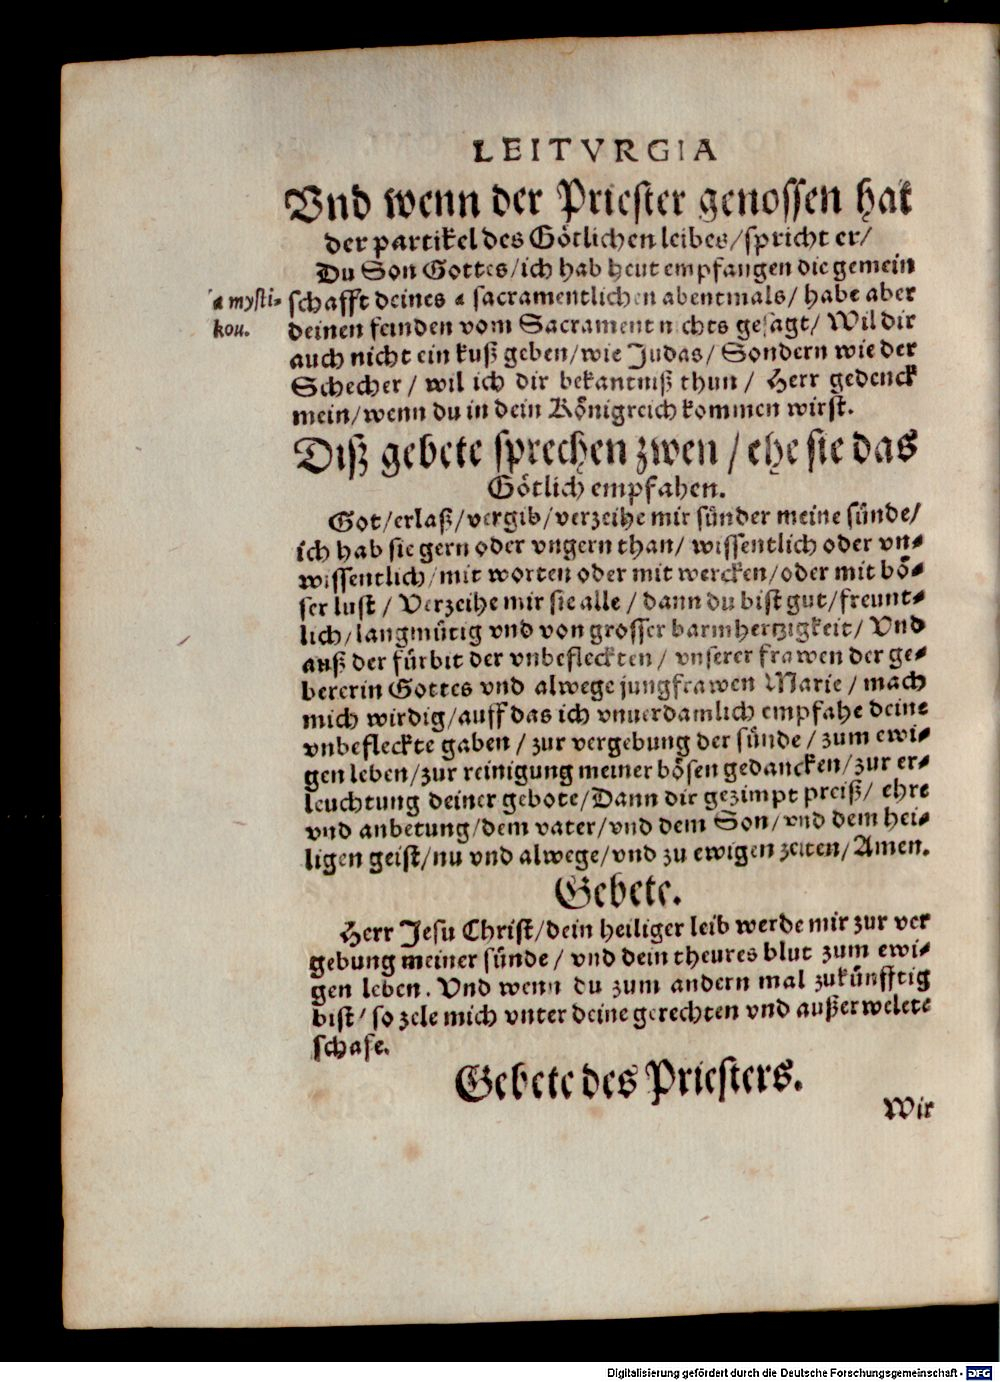 LEITVRGIA
Vnd wenn der Priester genossen hat
der partikel des Götlichen leibes/spricht er/
Du Son Gottes/ich hab heut empfangen die gemein
a mysti-
kou.
schafft deines a sacramentlichen abentmals/ habe aber
deinen feinden vom Sacrament nichts gesagt/ Wil dir
auch nicht ein kuß geben/wie Judas/ Sondern wie der
Schecher/ wil ich dir bekantniß thun/ Herr gedenck
mein/wenn du in dein Königreich kommen wirst.
Diß gebete sprechen zwen/ehe sie das
Götlich empfahen.
Got/erlaß/vergib/verzeihe mir sünder meine sünde/
ich hab sie gern oder vngern than/ wissentlich oder vn-
wissentlich/mit worten oder mit wercken/oder mit bö-
ser lust/ Verzeihe mir sie alle/ dann du bist gut/freunt-
lich/langmütig vnd von grosser barmhertzigkeit/ Vnd
auß der fürbit der vnbefleckten/ vnserer frawen der ge-
bererin Gottes vnd alwege jungfrawen Marie/ mach
mich wirdig/auff das ich vnuerdamlich empfahe deine
vnbefleckte gaben/ zur vergebung der sünde/ zum ewi-
gen leben/zur reinigung meiner bösen gedancken/zur er-
leuchtung deiner gebote/Dann dir gezimpt preiß/ ehre
vnd anbetung/dem vater/vnd dem Son/vnd dem hei-
ligen geist/nu vnd alwege/vnd zu ewigen zeiten/Amen.
Gebete.
Herr Jesu Christ/dein heiliger leib werde mir zur ver
gebung meiner sünde/ vnd dein theures blut zum ewi-
gen leben. Vnd wenn du zum andern mal zukünfftig
bist/ so zele mich vnter deine gerechten vnd außerwelete
schafe.
Gebete des Priesters.
Wir
Digitalisierung gefördert durch die Deutsche Forschungsgemeinschaft - DFG